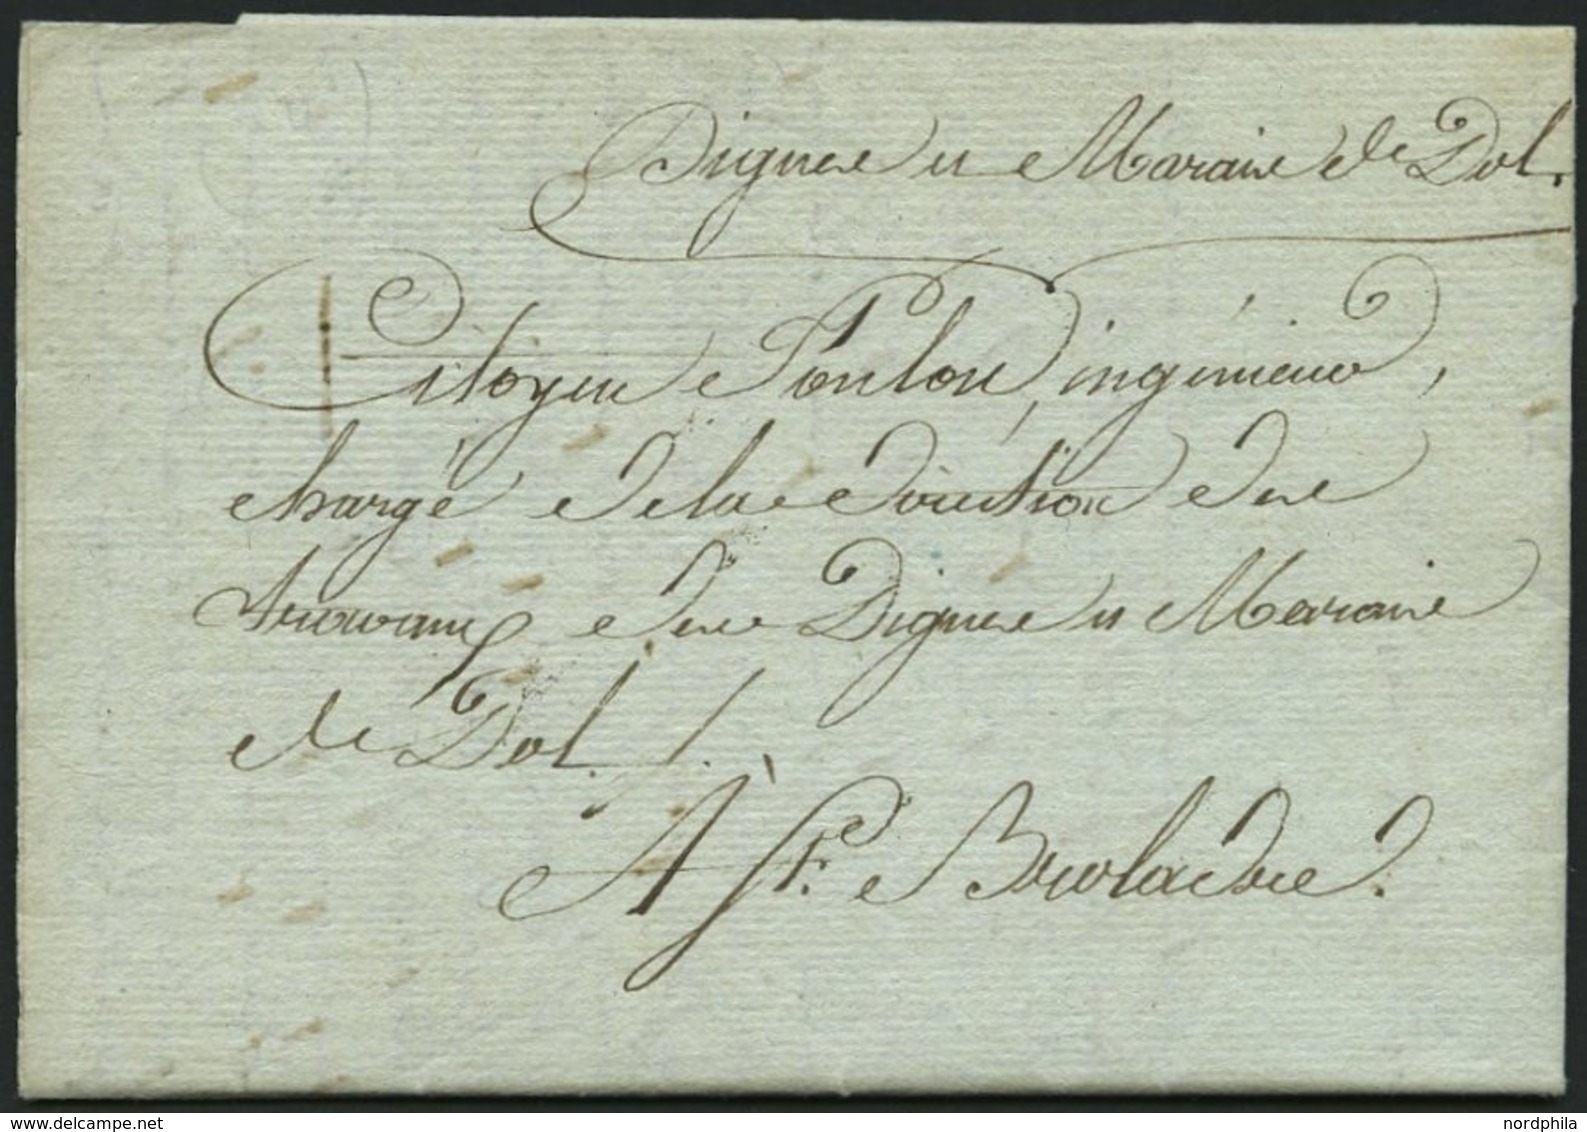 Digues et Marais de Dol.
Citoyen Poulou, ingénieur,
chargé de la direction des
travaux des Digues et Marais
de Dol./.
À St. Broladre.
www.delcampe.net
nordphila